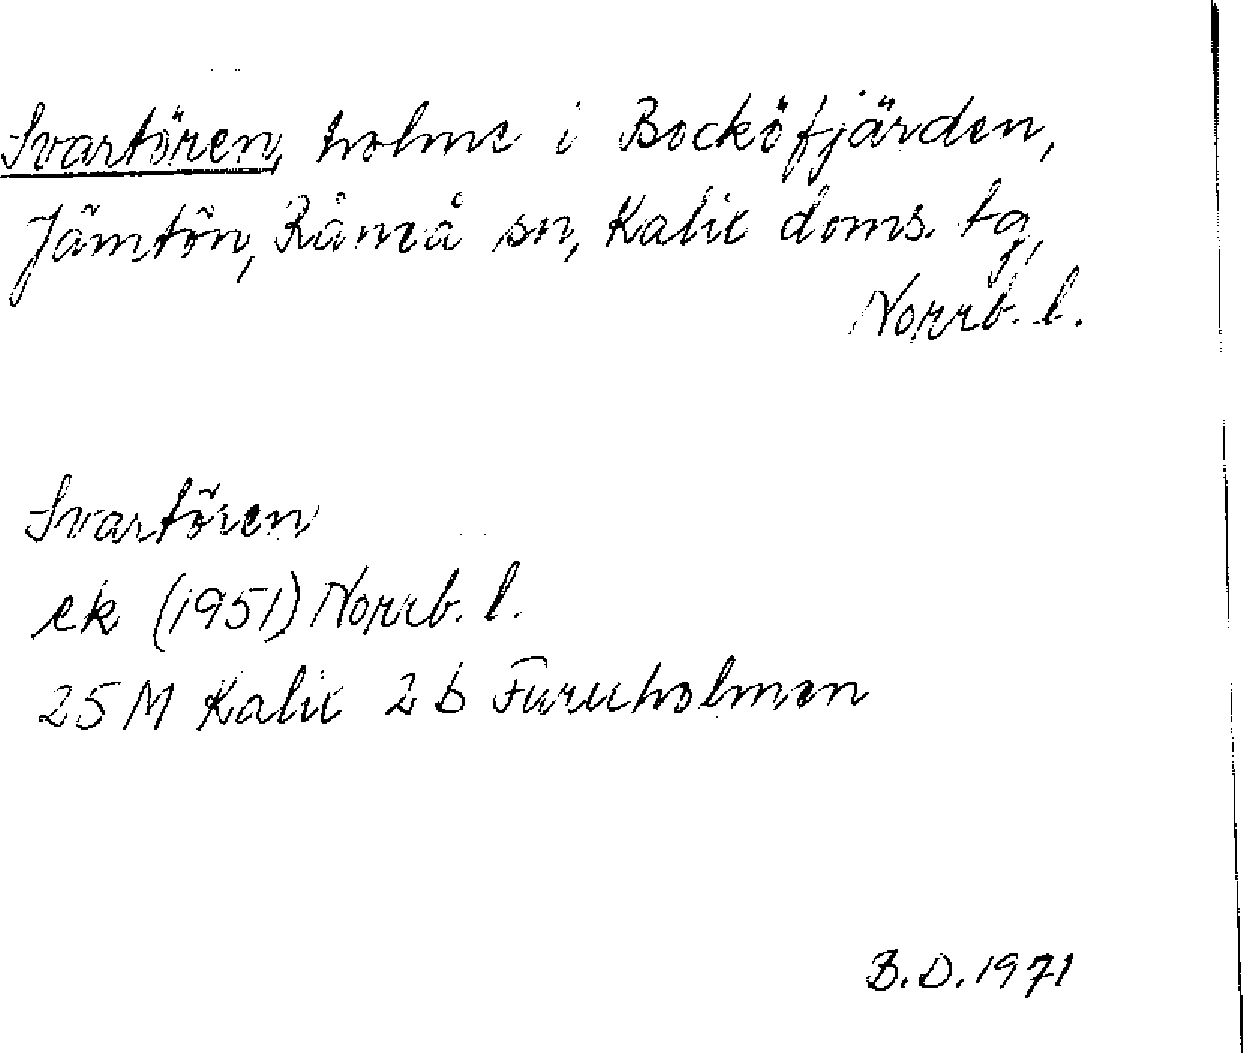 Svartören, holme i Bocköfjärden,
Jämtön, Råneå sn, Kalix doms. tg,
Norrb. l.
Svartören
ek (1951) Norrb. l.
25 M Kalix 2 b Furuholmen
B.D. 1971